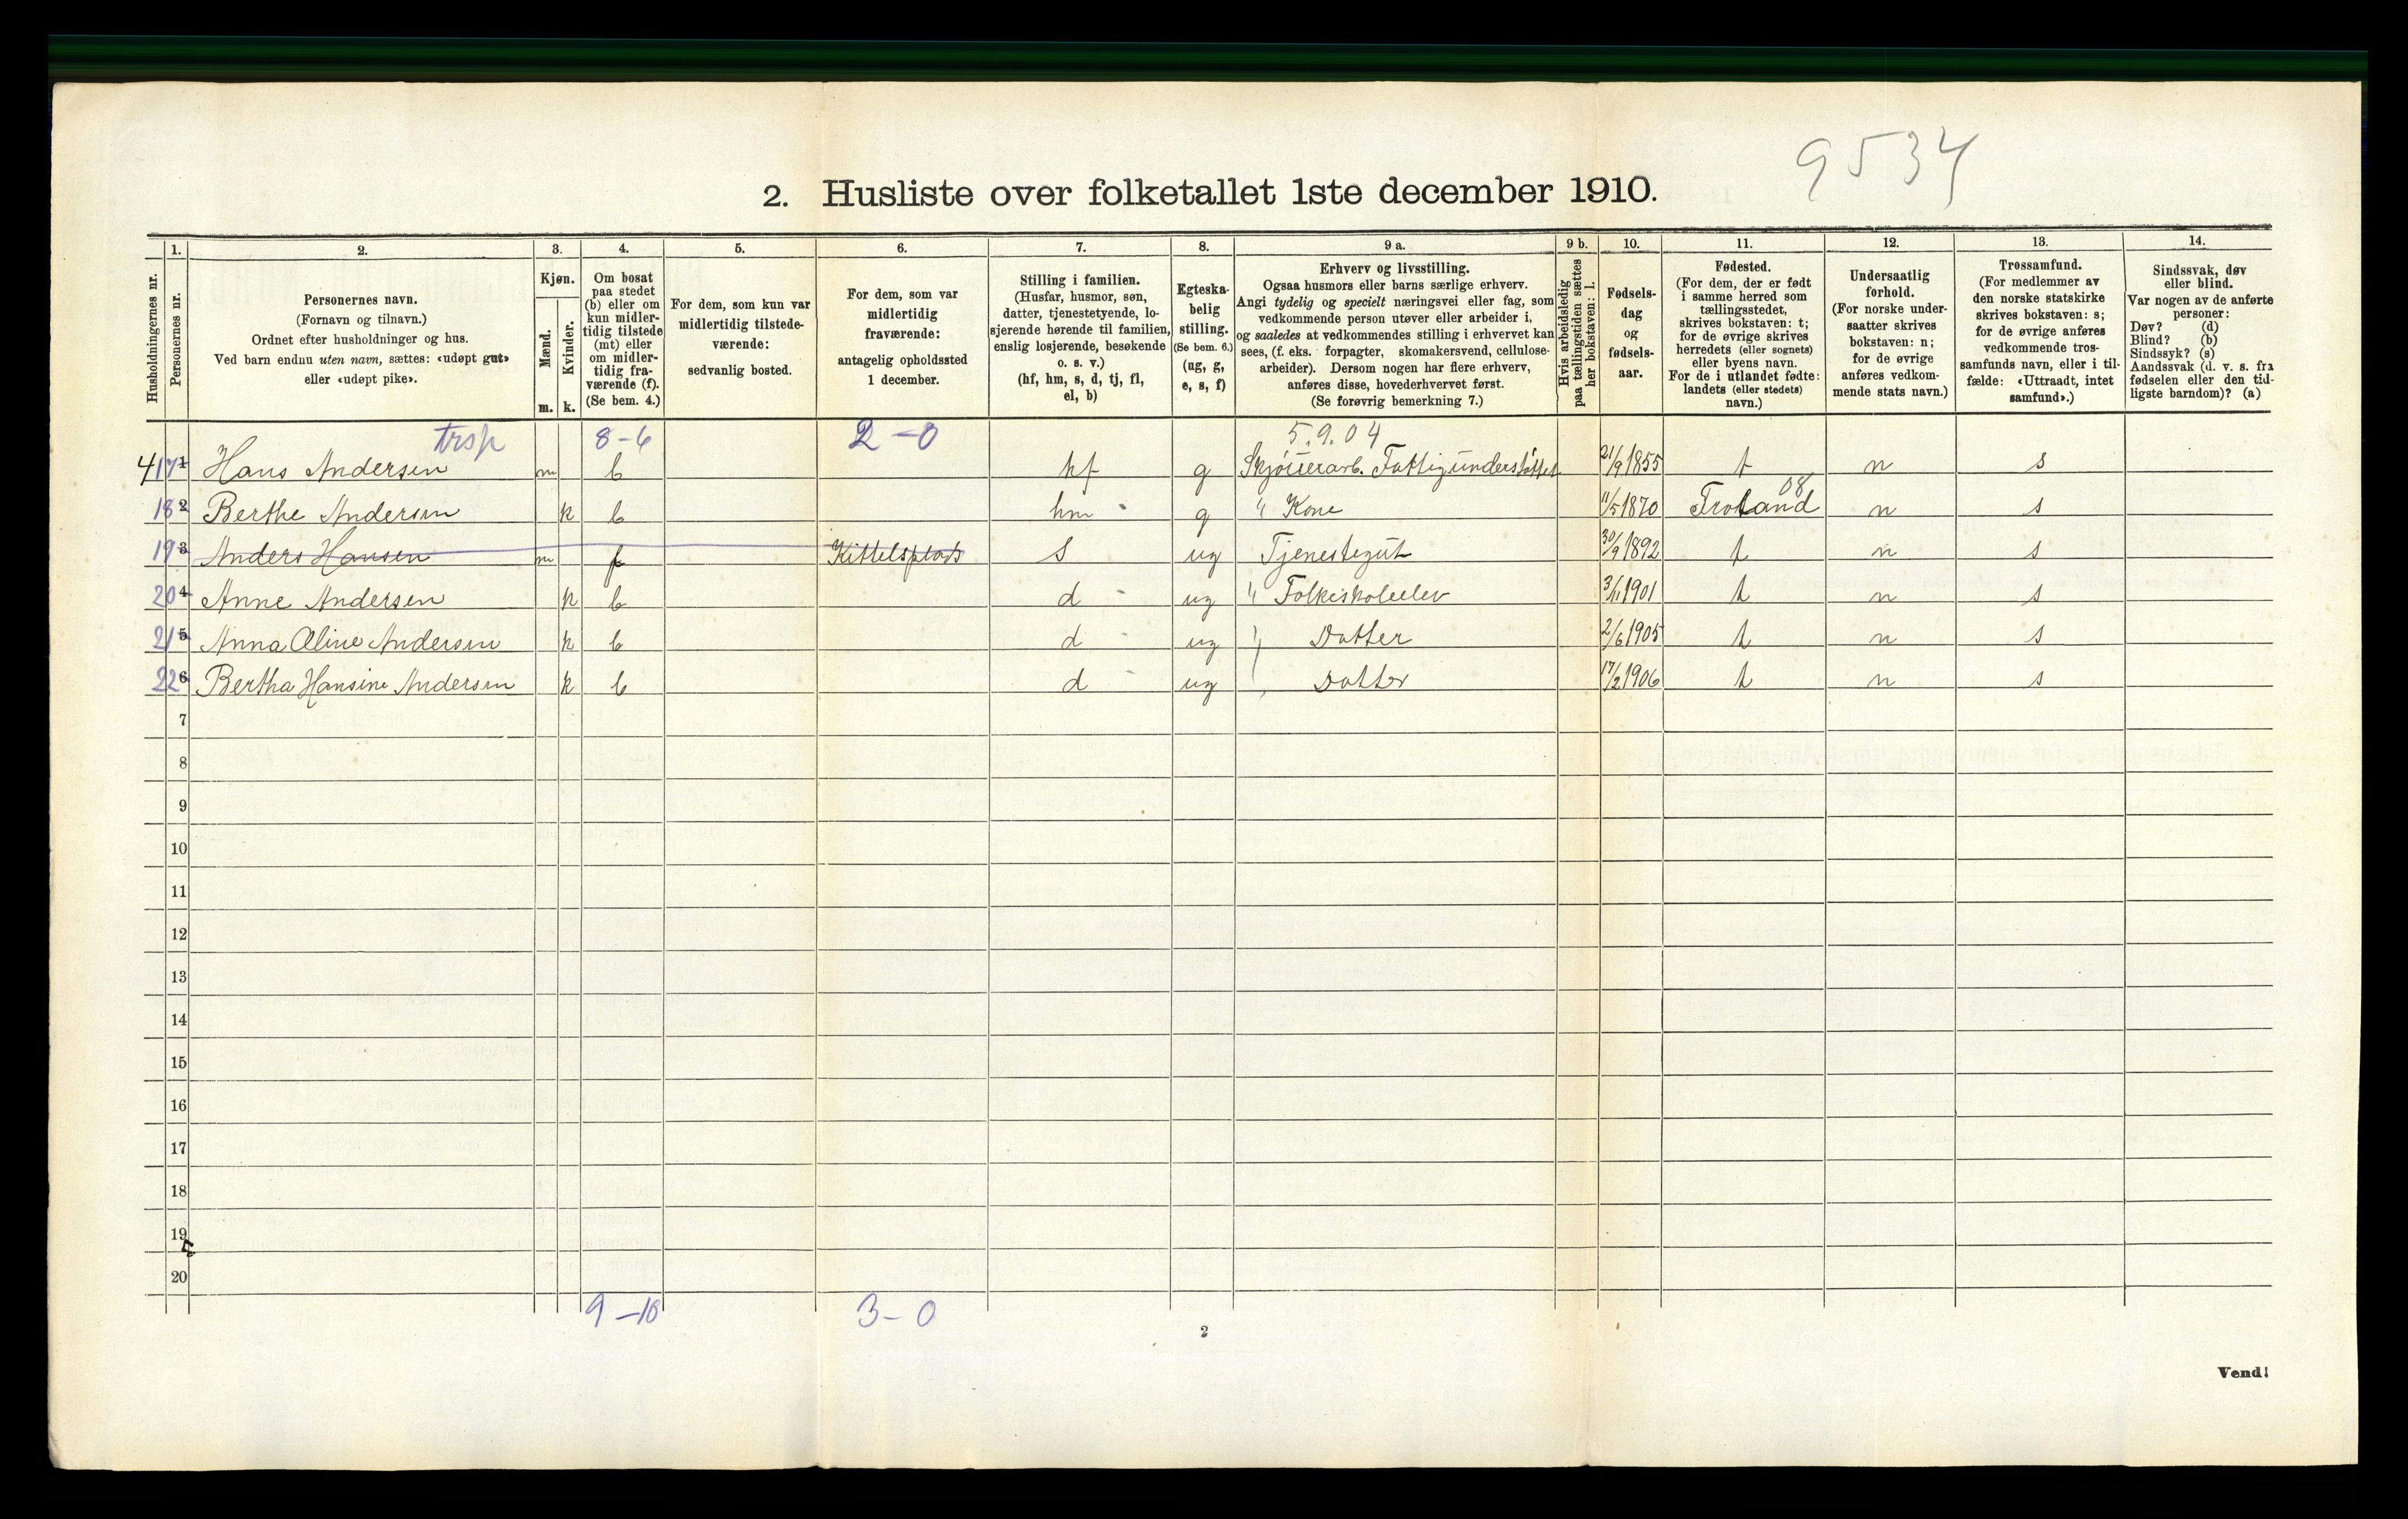 9534
2. Husliste over folketallet 1ste december 1910.
Husholdningernes nr.
1. Personernes nr.
2. Personernes navn.
(Fornavn og tilnavn.)
Ordnet efter husholdninger og hus.
Ved barn endnu uten navn, sættes: «udøpt gut»
eller «udøpt pike».
3. Kjøn.
Mænd. m.
Kvinder. k.
4. Om bosat
paa stedet
(b) eller om
kun midler-
tidig tilstede
(mt) eller
om midler-
tidig fra-
værende (f).
(Se bem. 4.)
5. For dem, som kun var
midlertidig tilstede-
værende:
sedvanlig bosted.
6. For dem, som var
midlertidig
fraværende:
antagelig opholdssted
1 december.
7. Stilling i familien.
(Husfar, husmor, søn,
datter, tjenestetyende, lo-
sjerende hørende til familien,
enslig losjerende, besøkende
o. s. v.)
(hf, hm, s, d, tj, fl,
el, b)
8. Egteska-
belig
stilling.
(Se bem. 6.)
(ug, g,
e, s, f)
9 a. Erhverv og livsstilling.
Ogsaa husmors eller barns særlige erhverv.
Angi tydelig og specielt næringsvei eller fag, som
vedkommende person utøver eller arbeider i,
og saaledes at vedkommendes stilling i erhvervet kan
sees, (f. eks. forpagter, skomakersvend, cellulose-
arbeider). Dersom nogen har flere erhverv,
anføres disse, hovederhvervet først.
(Se forøvrig bemerkning 7.)
9 b. Hvis arbeidsledig
paa tællingstiden sættes
her bokstaven: l.
10. Fødsels-
dag
og
fødsels-
aar.
11. Fødested.
(For dem, der er født
i samme herred som
tællingsstedet,
skrives bokstaven: t;
for de øvrige skrives
herredets (eller sognets)
eller byens navn.
For de i utlandet fødte:
landets (eller stedets)
navn.)
12. Undersaatlig
forhold.
(For norske under-
saatter skrives
bokstaven: n;
for de øvrige
anføres vedkom-
mende stats navn.)
13. Trossamfund.
(For medlemmer av
den norske statskirke
skrives bokstaven: s;
for de øvrige anføres
vedkommende tros-
samfunds navn, eller i til-
fælde: «Uttraadt, intet
samfund».)
14. Sindssvak, døv
eller blind.
Var nogen av de anførte
personer:
Døv? (d)
Blind? (b)
Sindssyk? (s)
Aandssvak (d. v. s. fra
fødselen eller den tid-
ligste barndom)? (a)
trsp 8-6 2-0 5.9.04
4 17 1 Hans Andersen m b hf g Skjøuerarb. Fattigunderstøttet 21/9 1855 t n s
18 2 Berthe Andersen k b hm g " Kone 11/5 1870 Froland 08 n s
19 3 Anders Hansen m f Kittelsplads s ug Tjenestegut 30/9 1892 t n s
20 4 Anne Andersen k b d ug " Folkeskoleelev 3/11 1901 t n s
21 5 Anna Oline Andersen k b d ug " Datter 2/6 1905 t n s
22 6 Bertha Hansine Andersen k b d ug " Datter 17/2 1906 t n s
7
8
9
10
11
12
13
14
15
16
17
18
19
20
9-10 3-0
2
Vend!